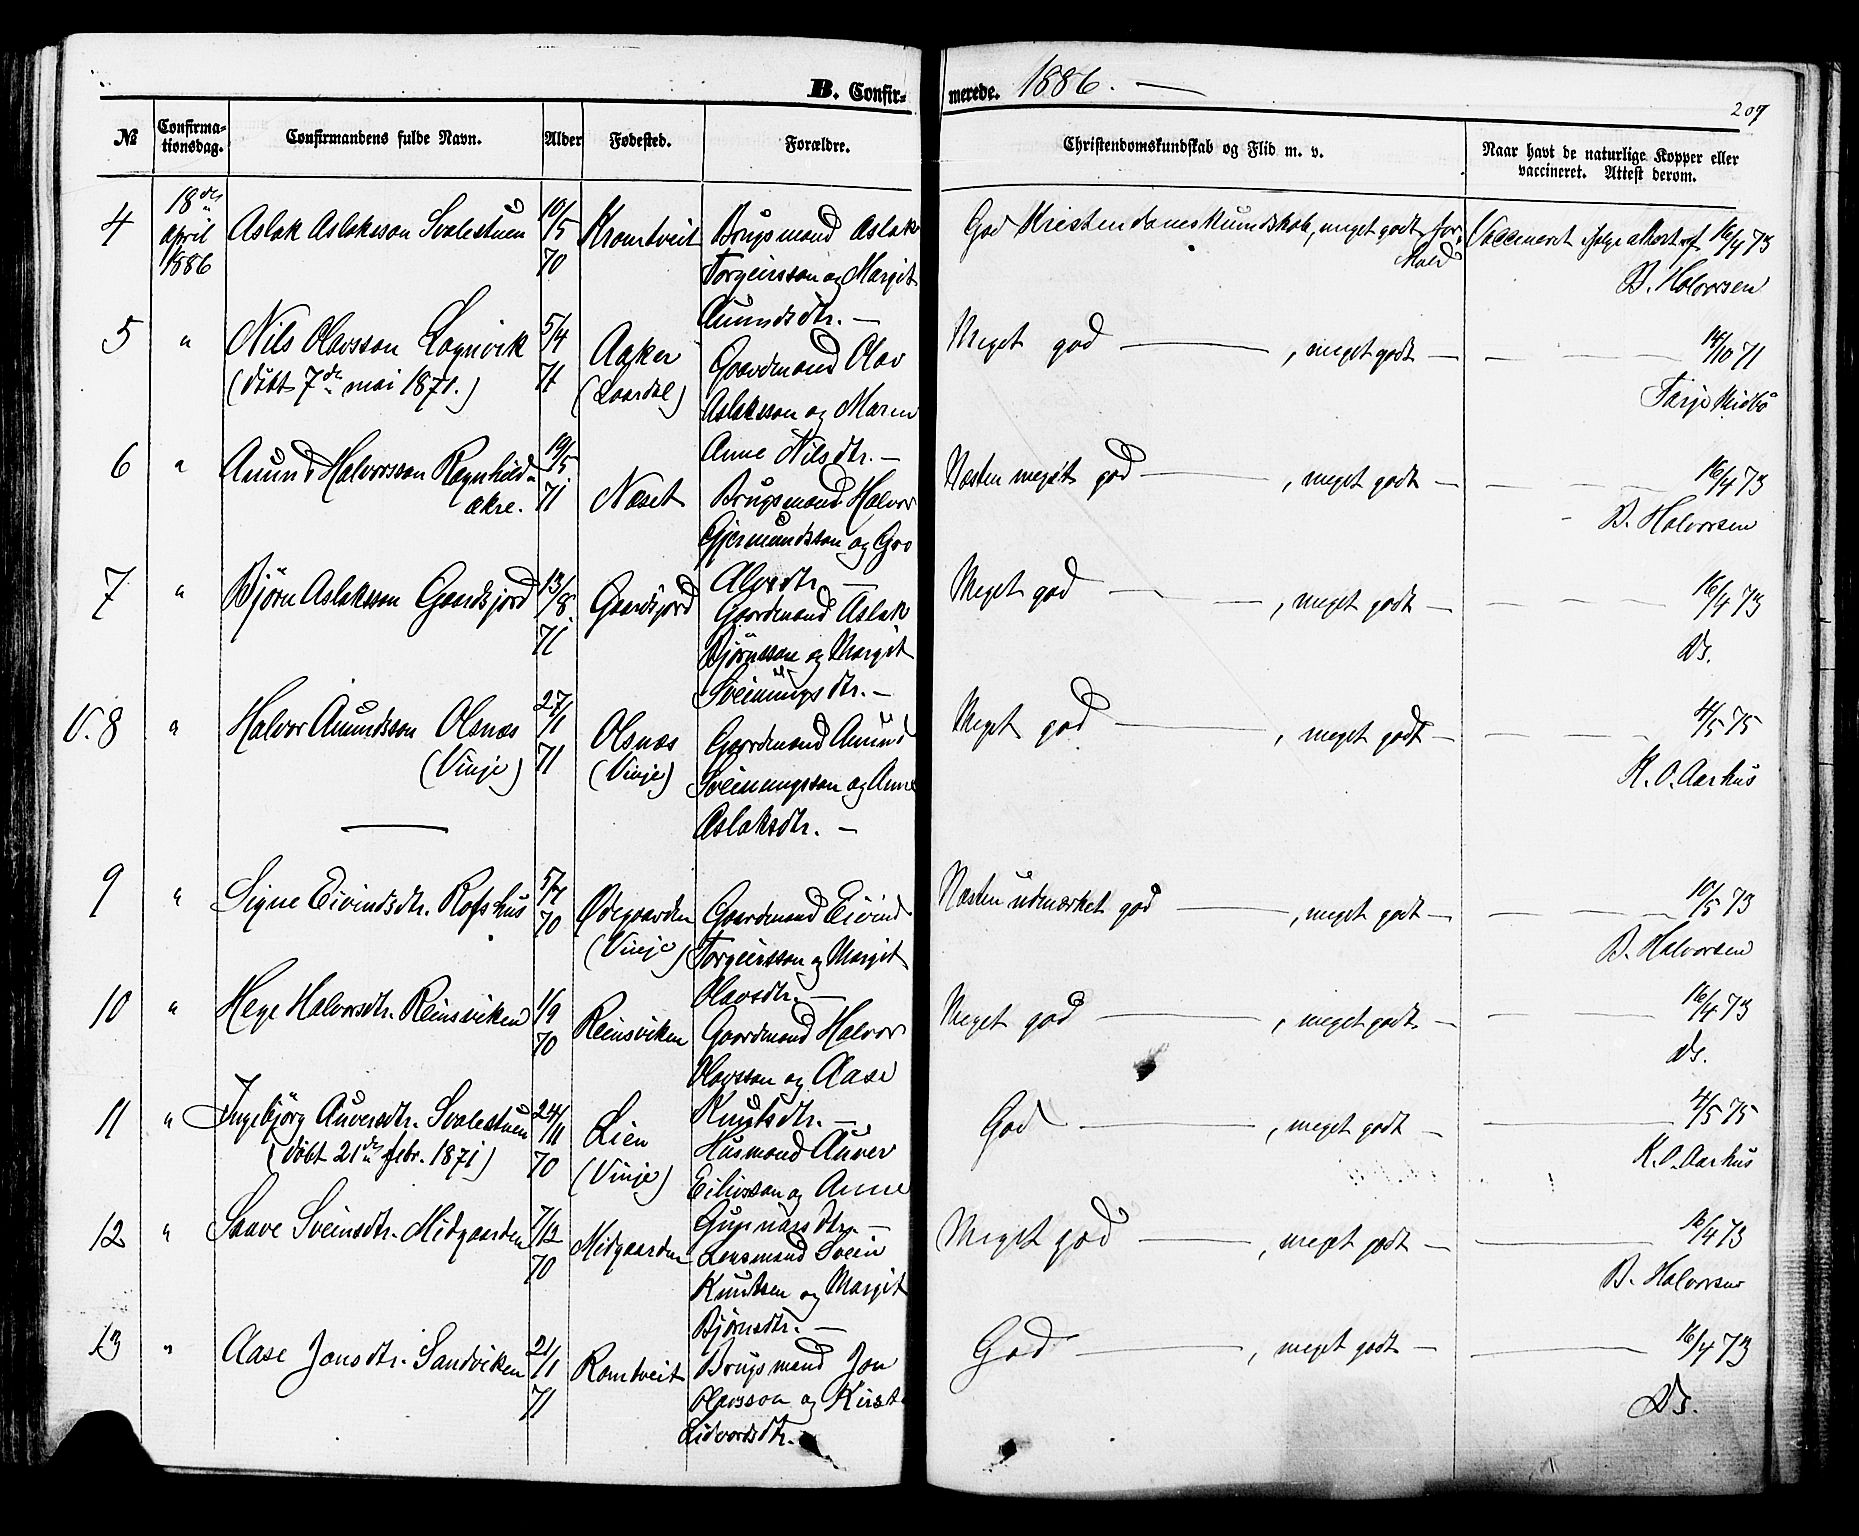 B. Confir-
merede. 1886. —
207
№
Confirma-
tionsdag.
Confirmandens fulde Navn.
Alder
Fødested.
Forældre.
Christendomskundskab og Flid m. v.
Naar havt de naturlige Kopper eller
vaccineret. Attest derom.
4
18de
april
1886
Aslak Aslaksson Svalestuen
10/5
70
Kromtveit
Brugsmand Aslak
Torgeirsson og Margit
Aumundsdtr. —
God Kristendomskundskab, meget godt for-
hold
Vaccineret ifølge attest af 16/4 73
B. Halvorsen
5
"
Nils Olavsson Lognvik
(døbt 7de mai 1871.)
5/4
71
Aaker
(Laardal)
Gaardmand Olav
Aslaksson og Maren
Anne Nilsdtr. —
Meget god — , meget godt —
— — 14/10 71
Tarje Midbö
6
"
Aunund Halvorsson Ragnhild-
ækre.
19/5
71
Næset
Brugsmand Halvor
Gjermundsson og Gro
Alvsdtr. —
Næsten meget god — , meget godt —
— — 16/4 73
B. Halvorsen
7
"
Bjørn Aslaksson Gaardsjord
13/8
71
Gaardsjord
Gaardmand Aslak
Bjørnsson og Margit
Sveinungsdtr. —
Meget god — , meget godt —
— — 16/4 73
Ds.
V. 8
"
Halvor Aunundsson Olsnæs
(Vinje)
27/1
71
Olsnæs
(Vinje)
Gaardmand Aunund
Sveinungsson og Anne
Aslaksdtr. —
Meget god — , meget godt —
— — 4/5 75
K. O. Aarhus
9
"
Signe Eivindsdtr. Rofshus
5/7
70
Ødegaarden
(Vinje)
Gaardmand Eivind
Torgeirsson og Margit
Olavsdtr. —
Næsten udmærket god — , meget godt —
— — 10/5 73
B. Halvorsen
10
"
Hege Halvorsdtr. Reinsviken
1/9
70
Reinsviken
Gaardmand Halvor
Olavsson og Aase
Knutsdtr. —
Meget god — , meget godt —
— — 16/4 73
Ds.
11
"
Ingebjörg Auversdtr. Svalestuen
(døbt 21de febr. 1871)
24/11
70
Lien
(Vinje)
Husmand Auver
Eilivsson og Anne
Gunnarsdtr. —
God — , meget godt —
— 4/5 75
K. O. Aarhus
12
"
Saave Sveinsdtr. Midgaarden
7/12
70
Midgaarden
Lensmand Svein
Knutsen og Margit
Bjørnsdtr. —
Meget god — , meget godt —
— 16/4 73
B. Halvorsen
13
"
Aase Jonsdtr. Sandviken
2/1
71
Romtveit
Brugsmand Jon
Olavsson og Kirst
Lidvordsdtr.
God — , meget godt —
— 16/4 73
Ds.